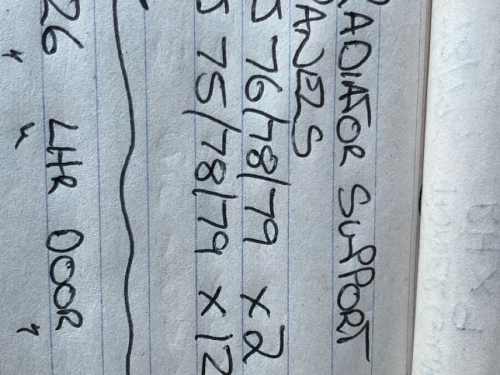 RADIATOR SUPPORT
PANELS
5 76/78/79 x2
5 75/78/79 x12
26 LHR DOOR
" " "